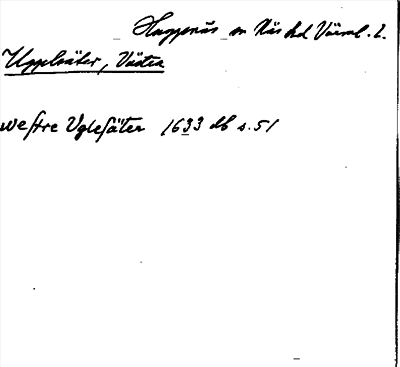 Huggenäs sn Näs hd Värml. l.
Ugglesäter, Västra
westre Uglesäter 1633 db s. 51